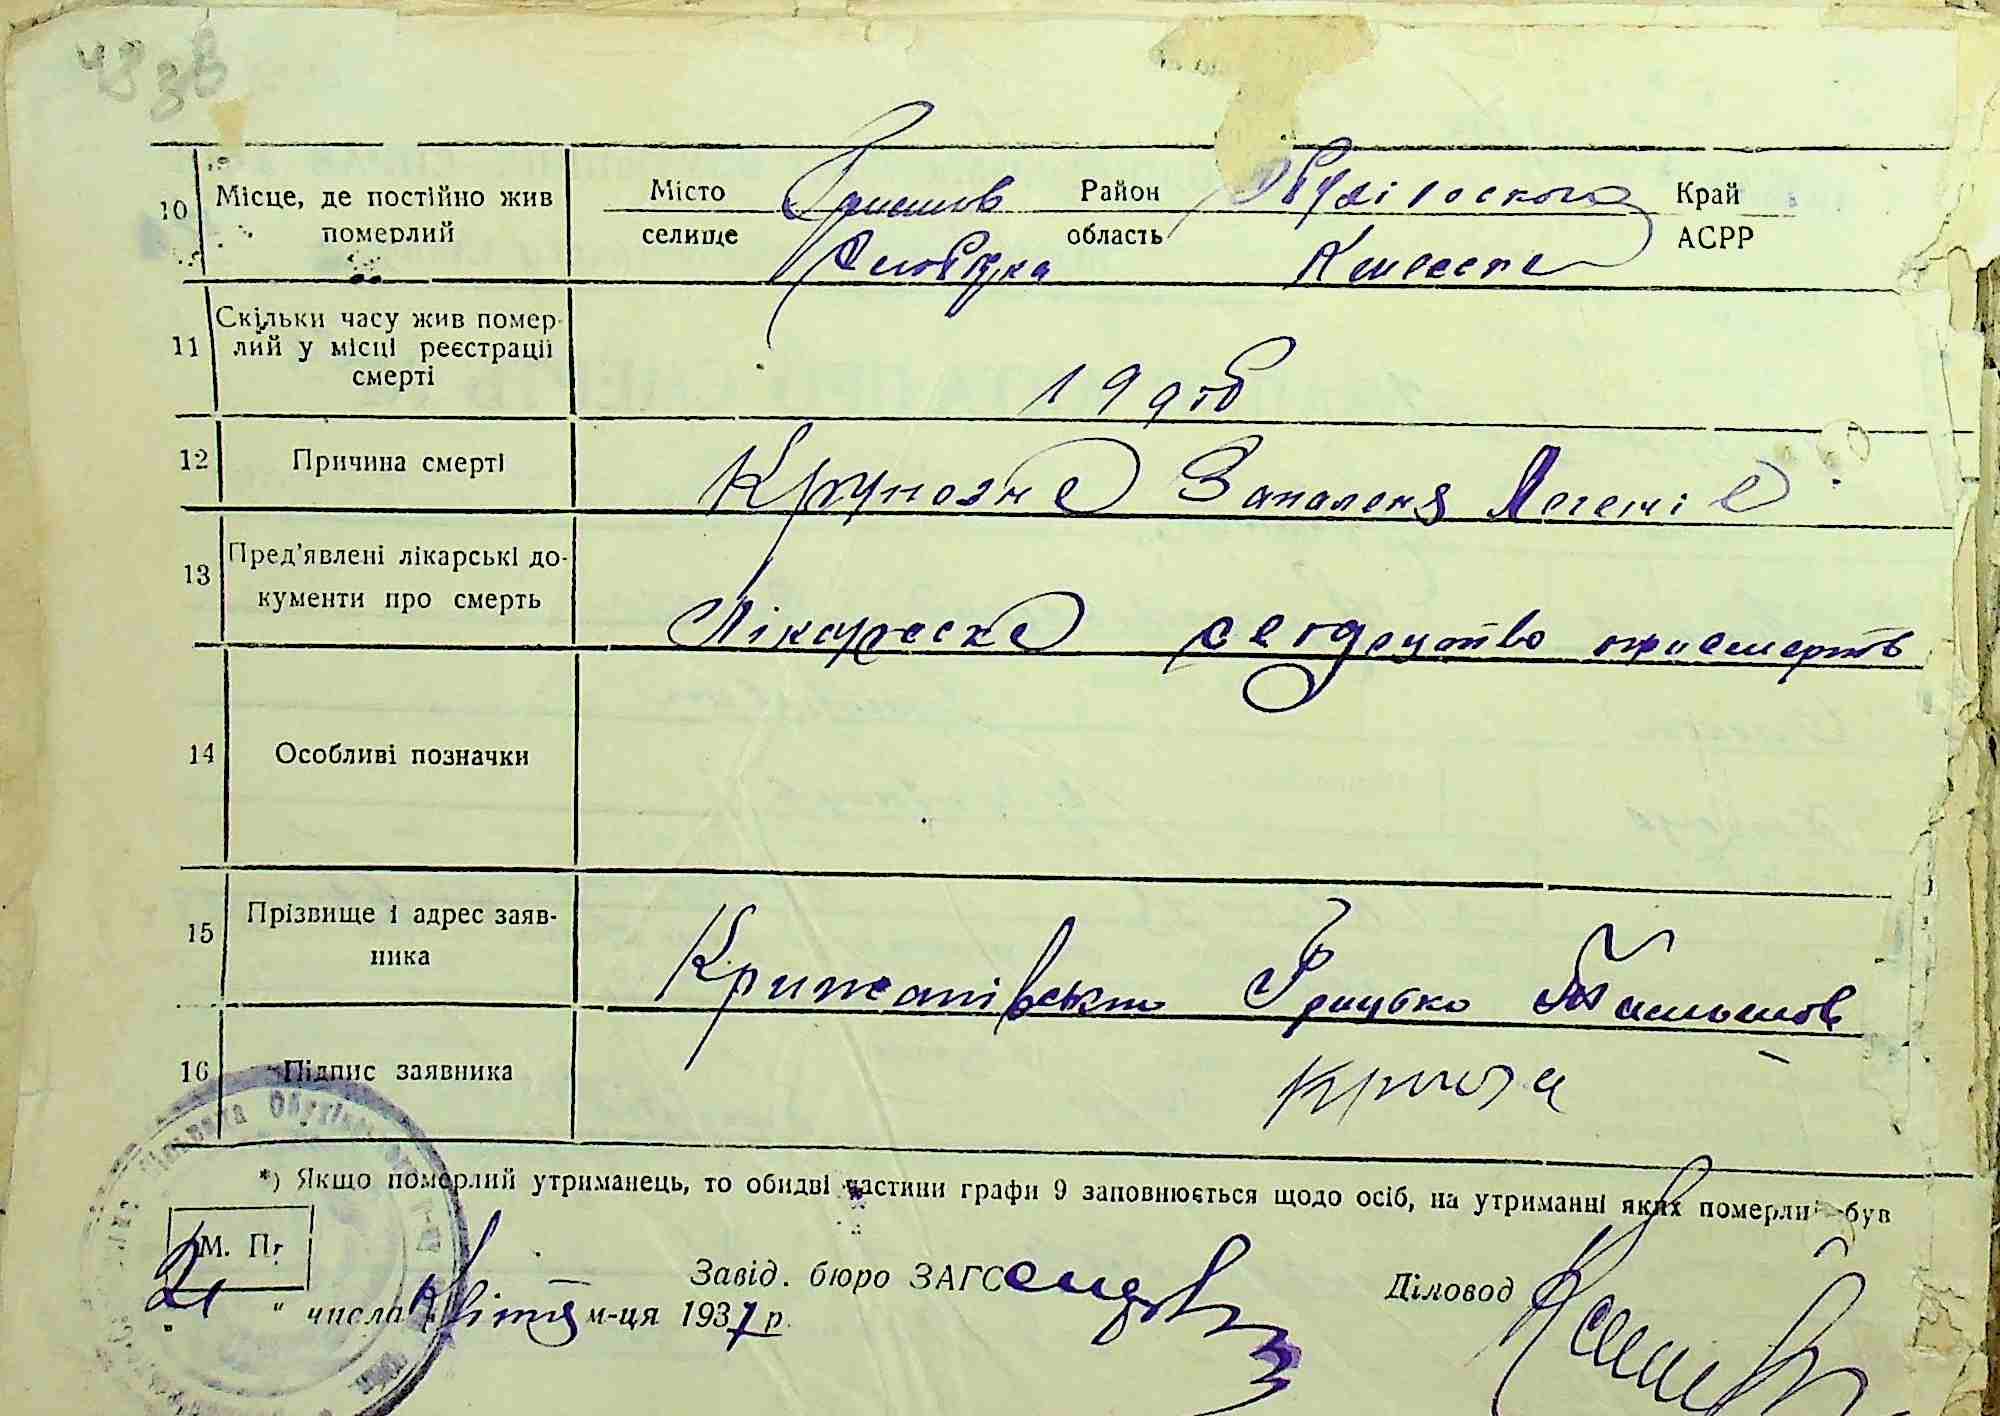 10 Місце, де постійно жив померлий
Місто селище
Слобідка
Район область
Обухівського
Київське
Край АСРР
11 Скільки часу жив померлий у місці реєстрації смерті
19 діб
12 Причина смерті
Крупозне Запаленя Легенів
13 Пред'явлені лікарські документи про смерть
Лікарське свідоцтво присмерть
14 Особливі позначки
15 Прізвище і адрес заявника
Грицько
16 Підпис заявника
*) Якщо померлий утриманець, то обидві частини графи 9 заповнюється щодо осіб, на утриманні яких померлий був
М. П.
Завід. бюро ЗАГС
Діловод
21 " числа Квітня м-ця 1937 р.